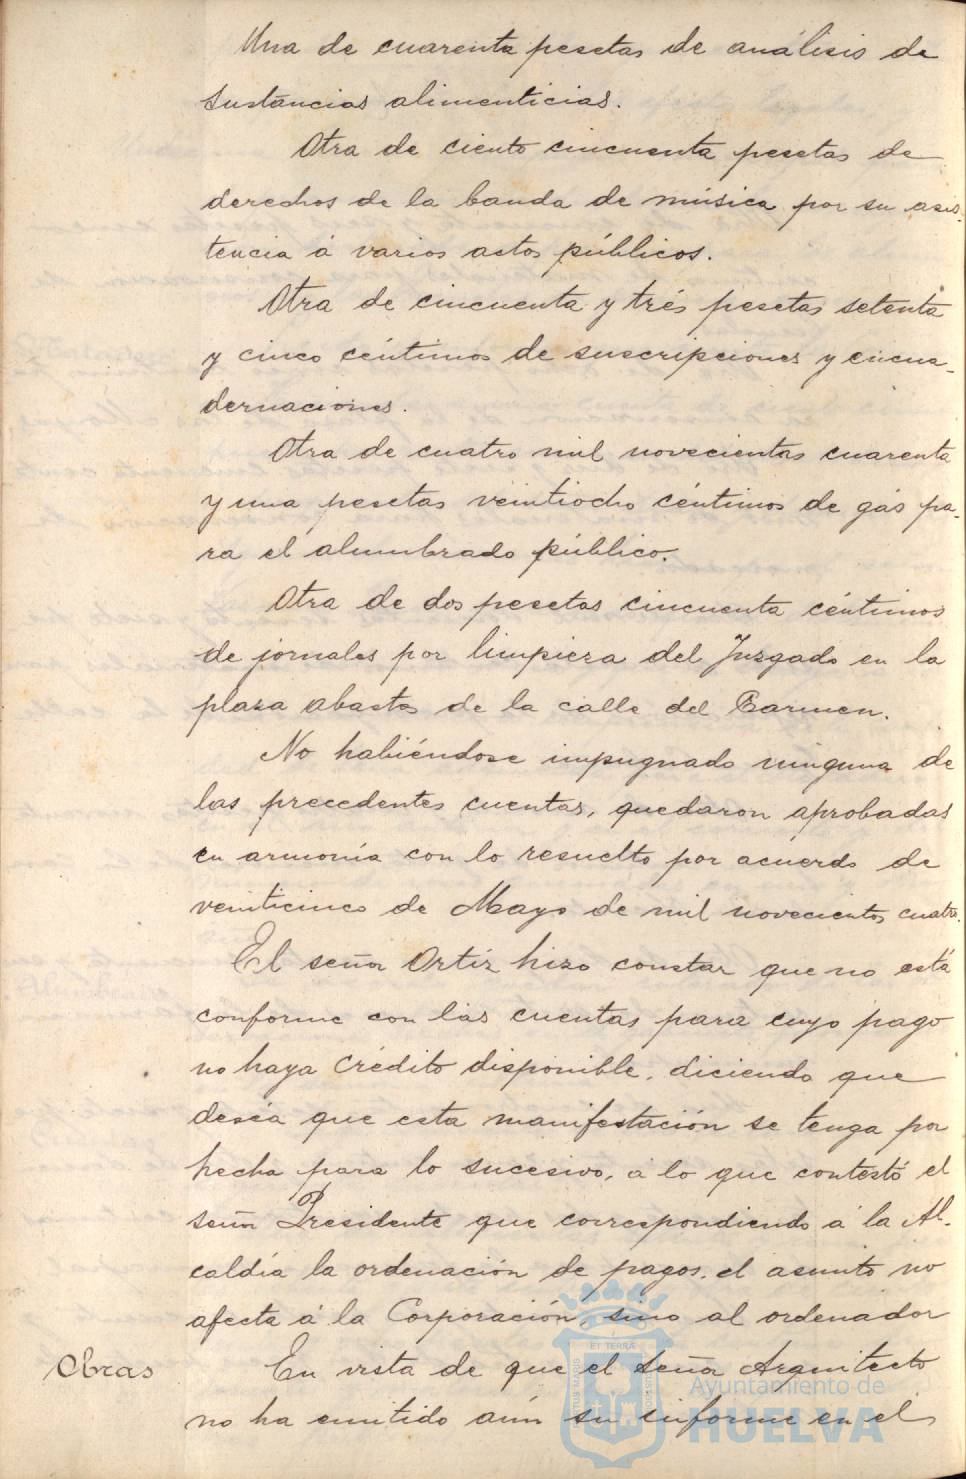 Una de cuarenta pesetas de análisis de
sustancias alimenticias.
Otra de ciento cincuenta pesetas de
derechos de la banda de música por su asis-
tencia á varios actos públicos.
Otra de cincuenta y trés pesetas setenta
y cinco céntimos de suscripciones y encua-
dernaciones.
Otra de cuatro mil novecientas cuarenta
y una pesetas veintiocho céntimos de gás pa-
ra el alumbrado público.
Otra de dos pesetas cincuenta céntimos
de jornales por limpieza del Juzgado en la
plaza abastos de la calle del Carmen.
No habiéndose impugnado ninguna de
las precedentes cuentas, quedaron aprobadas
en armonía con lo resuelto por acuerdo de
veinticinco de Mayo de mil novecientos cuatro.
El señor Ortíz hizo constar que no está
conforme con las cuentas para cuyo pago
no haya crédito disponible, diciendo que
deséa que esta manifestación se tenga por
hecha para lo sucesivo, á lo que contestó el
señor Presidente que correspondiendo á la Al-
caldía la ordenación de pagos, el asunto no
afecta á la Corporación, sino al ordenador
Obras
En vista de que el señor Arquitecto
no ha emitido aún su informe en el
ET TERRA
Ayuntamiento de
HUELVA